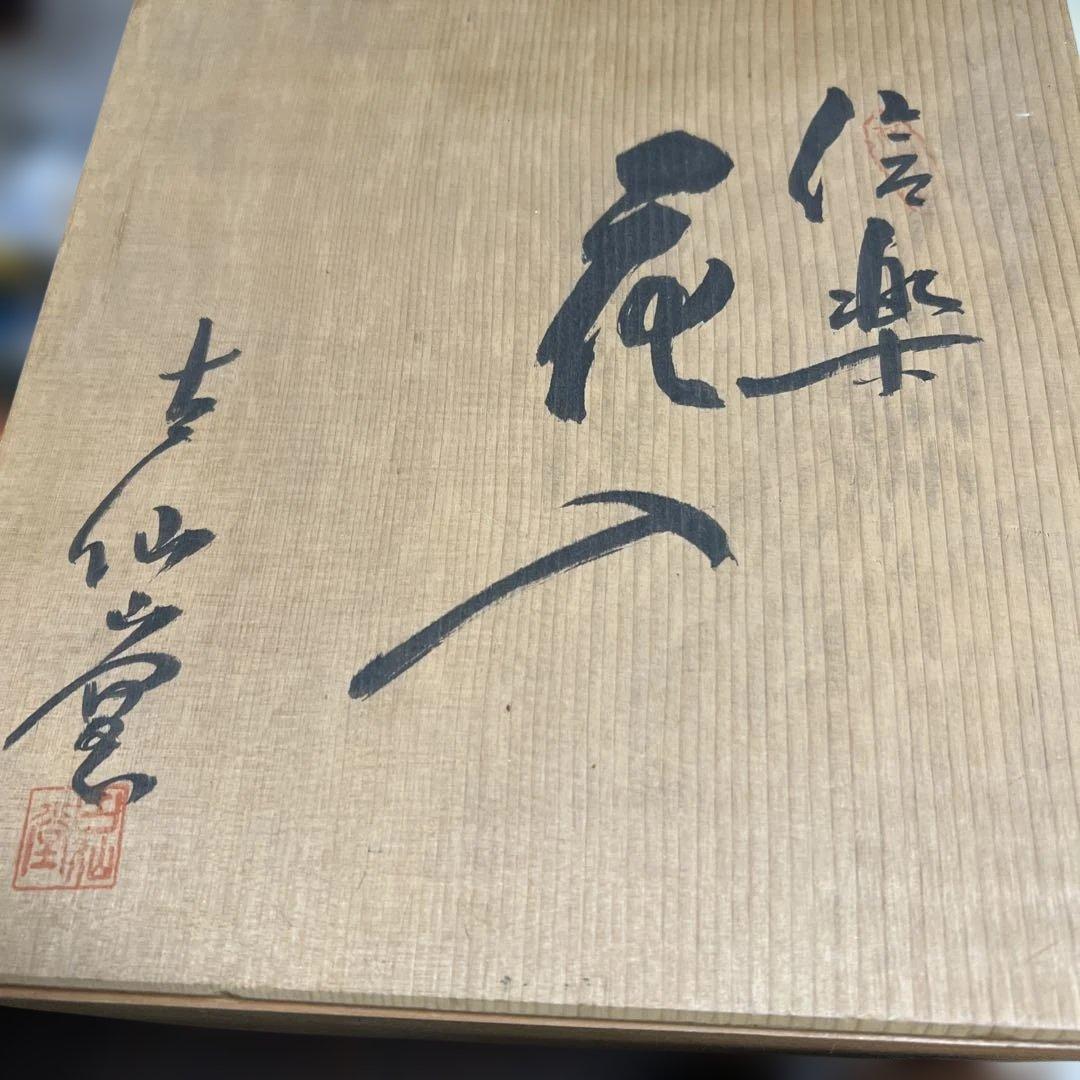 信楽
花入
古仙堂
古仙堂